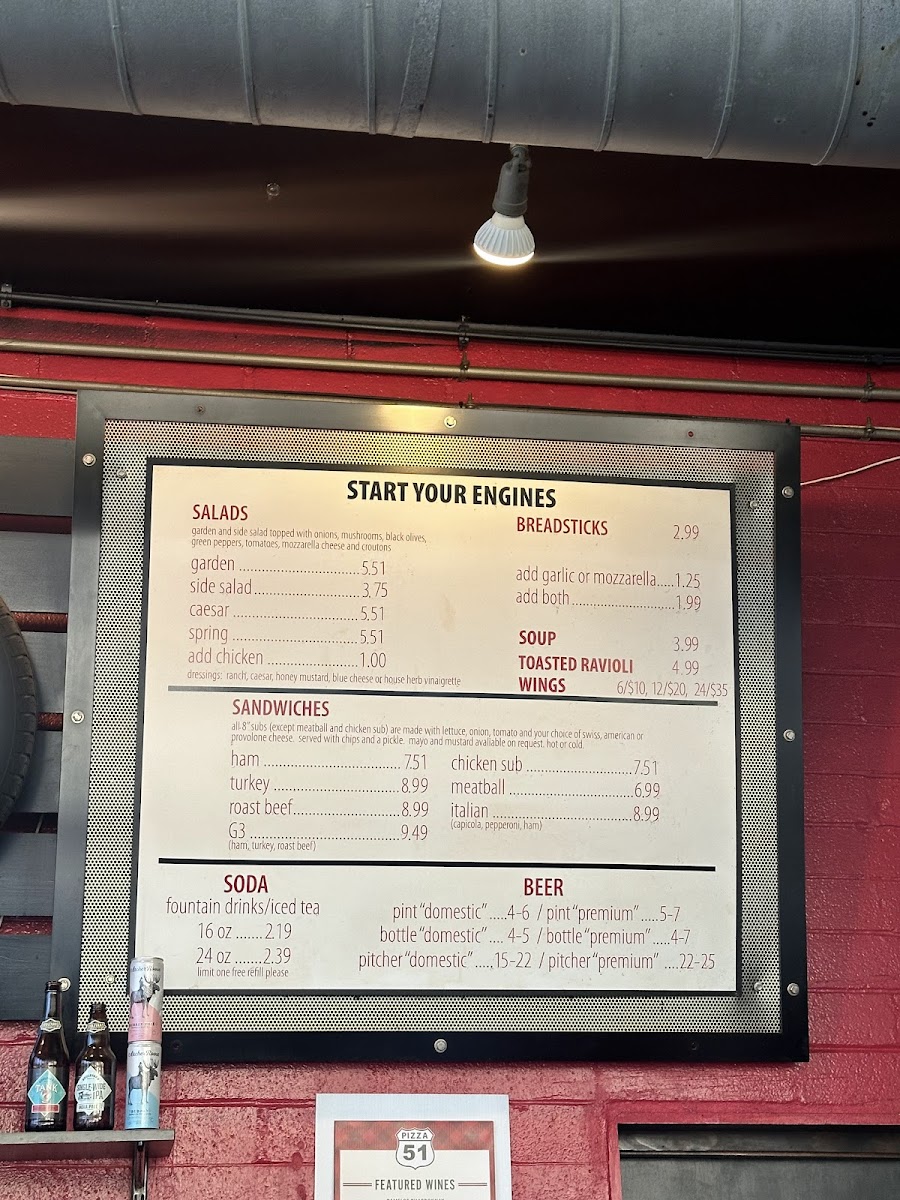 START YOUR ENGINES
SALADS
garden and side salad topped with onions, mushrooms, black olives,
green peppers, tomatoes, mozzarella cheese and croutons
garden ..............................5.51
side salad..........................3.75
caesar ..............................5.51
spring ..............................5.51
add chicken ......................1.00
dressings: ranch, caesar, honey mustard, blue cheese or house herb vinaigrette
BREADSTICKS 2.99
add garlic or mozzarella.....1.25
add both..........................1.99
SOUP 3.99
TOASTED RAVIOLI 4.99
WINGS 6/$10, 12/$20, 24/$35
SANDWICHES
all 8" subs (except meatball and chicken sub) are made with lettuce, onion, tomato and your choice of swiss, american or
provolone cheese. served with chips and a pickle. mayo and mustard available on request. hot or cold.
ham ..................................7.51
turkey ...............................8.99
roast beef..........................8.99
G3 ....................................9.49
(ham, turkey, roast beef)
chicken sub ..........................7.51
meatball ..............................6.99
italian ..................................8.99
(capicola, pepperoni, ham)
SODA
fountain drinks/iced tea
16 oz .......2.19
24 oz .......2.39
limit one free refill please
BEER
pint "domestic" .....4-6 / pint "premium" .....5-7
bottle "domestic" .... 4-5 / bottle "premium" .....4-7
pitcher "domestic" .....15-22 / pitcher "premium" .....22-25
TANK
7
SINGLE-WIDE
IPA
PIZZA
51
FEATURED WINES